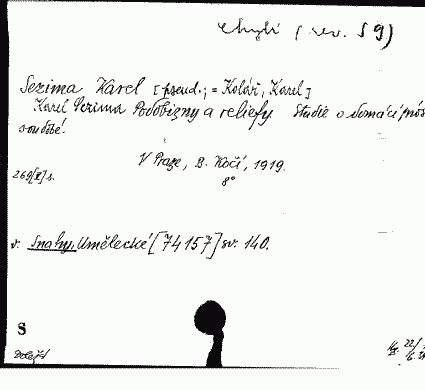 chybí (rev. 59)
Sezima Karel [pseud.; = Kolář, Karel]
Karel Sezima Podobizny a reliefy Studie o domácí próse
soudobé.
V Praze, B. Kočí, 1919.
8°
269[II] s.
v: Snahy, Umělecké [74157] sv. 140.
S
22/